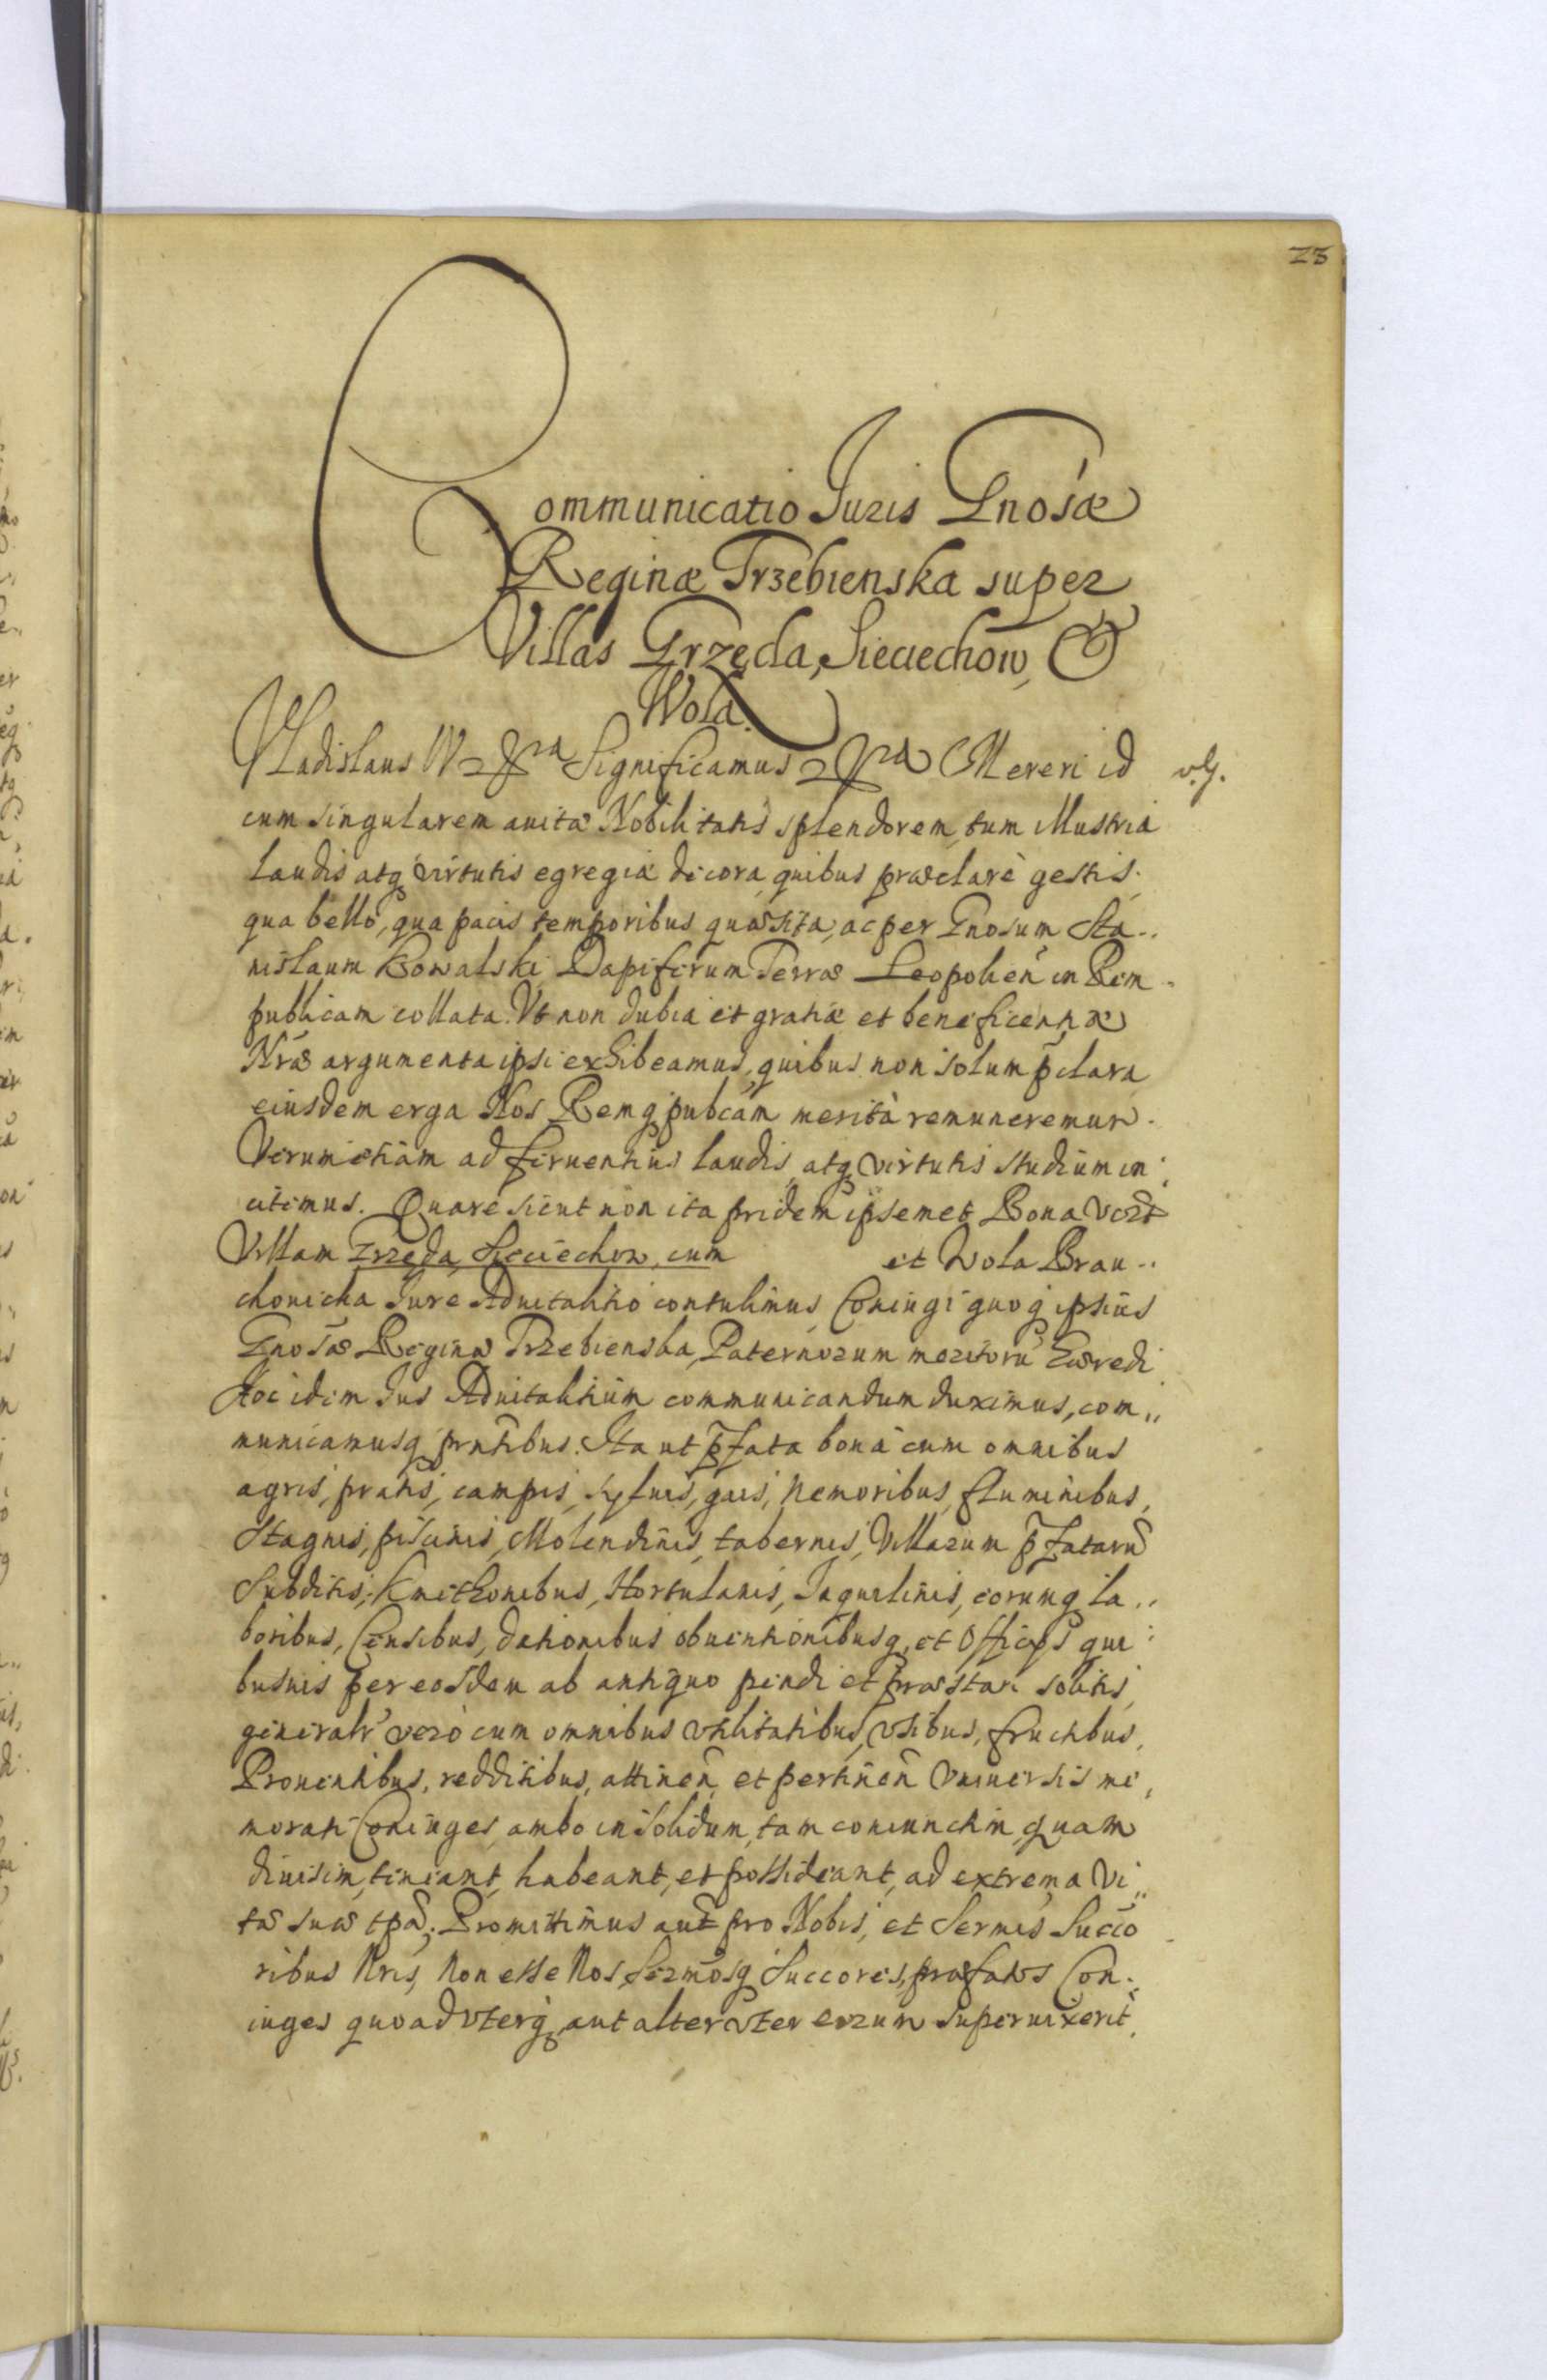 28
Communicatio Juris Gnosæ
Reginæ Trzebienska super
Villas Grzęda, Sieciechow, &
Wola.
Vladislaus IV Significamus Mereri id
cum singularem auitæ Nobilitatis splendorem, tum illustria
laudis atq virtutis egregiæ decora, quibus præclarè gestis.
qua bello, qua pacis temporibus quæsita, ac per Gnosum Sta..
nislaum Kowalski Dapiferum Terræ Leopolien in Rem
publicam collata. Vt non dubia et gratiæ et beneficentiæ
Nræ argumenta ipsi exhibeamus, quibus non solum pclara
eiusdem erga Nos Remq pubcam merita remuneremur.
Verumetiam ad feruentius laudis, atq virtutis studium in:
citemus. Quare sicut non ita pridem ipsemet Bona
Villam Grzęda, Sieciechow, cum et Wola Brau..
chouicka Jure Aduitalitio contulimus, Coniugi quoq ipsius
Gnosæ Reginæ Trzebienska, Paternorum meritorũ Hæredi
Hoc idem Jus Aduitalitium communicandum duximus, com,,
municamusq pntibus. Ita ut pfata bona cum omnibus
agris, pratis, campis, syluis, gais, Nemoribus, fluminibus,
Stagnis, piscinis, Molendinis, tabernis, Villarum pfatarũ
Subditis, Kmethonibus, Hortulanis, Inquilinis, eorumq la..
boribus, Censibus, dationibus obuentionibusq, et Officys qui:
busuis per eosdem ab antiquo pendi et præstari solitis,
generalr verò cum omnibus vtilitatibus, vsibus, fructibus,
Prouentibus, redditibus, attinen et pertinen vniuersis me,
morati Coniuges ambo in solidum, tam coniunctim, quam
diuisim, teneant, habeant, et possideant, ad extrema Vi,,
tæ suæ tpa. Promittimus aut pro Nobis, et Sermis Succo
ribus Nris, Non esse Nos, Sermosq Succores, præfatos Con..
iuges quoad vterq aut alteruter eorum superuixerit,